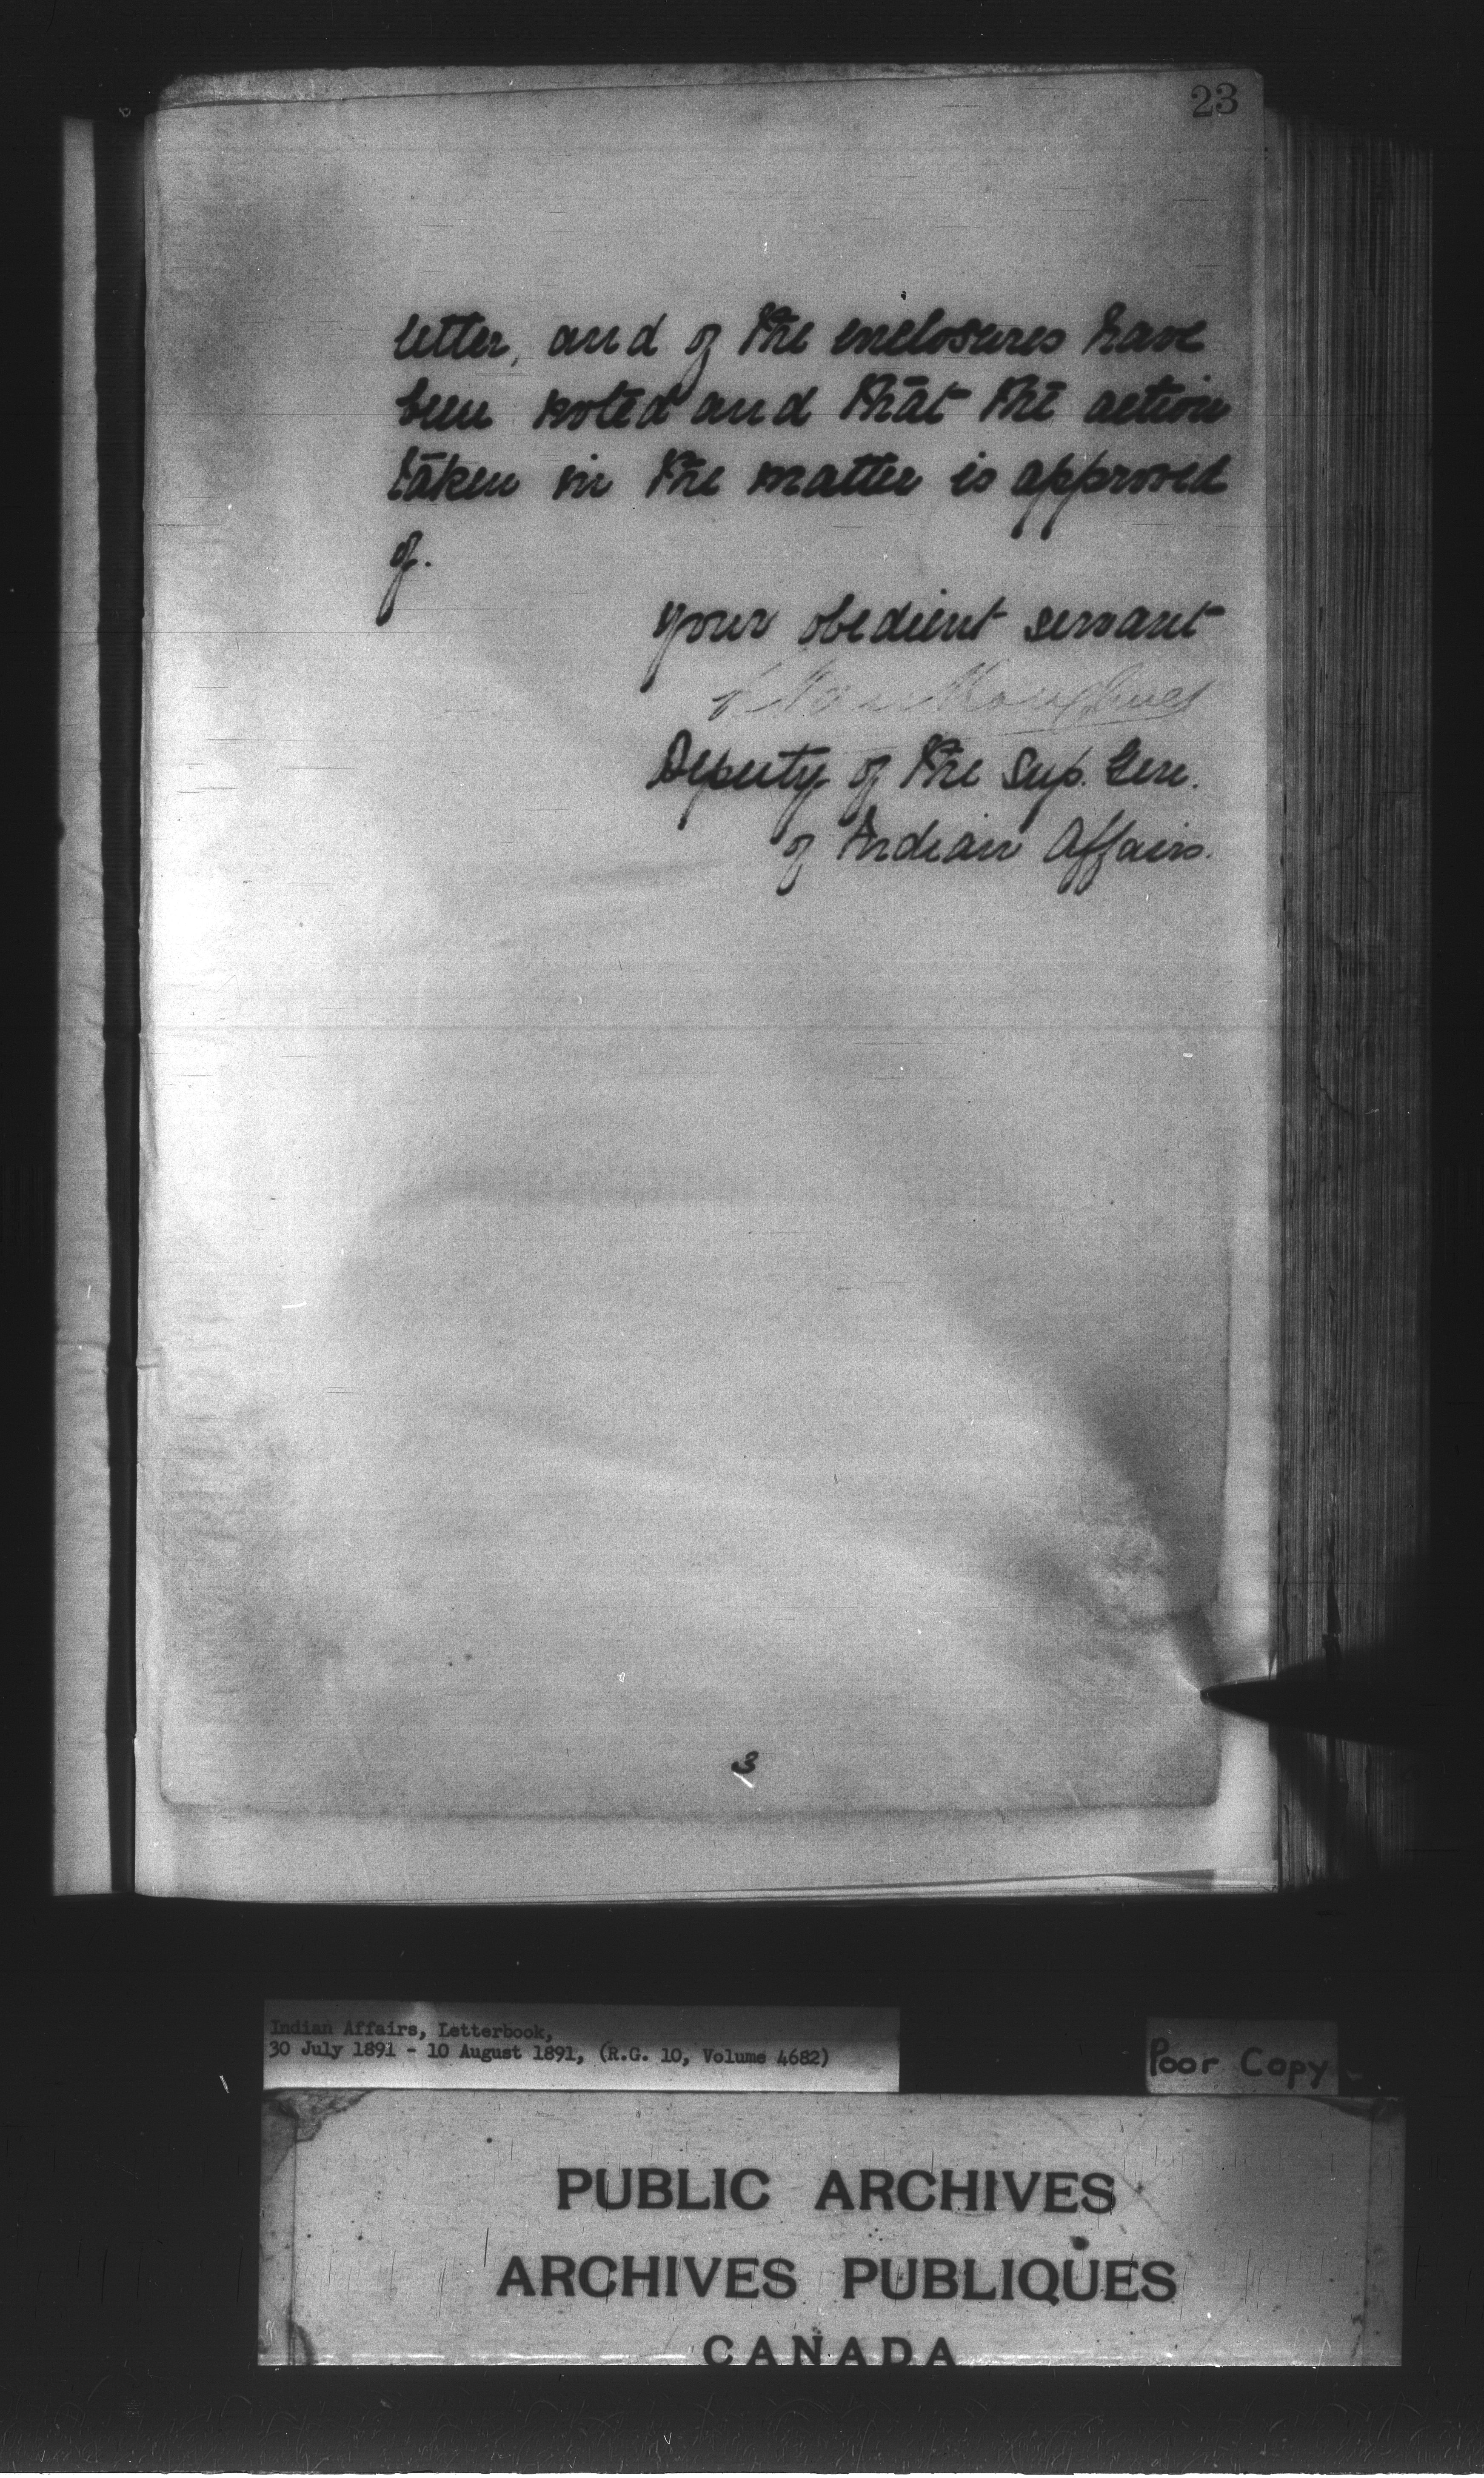 23
letter, and of the enclosures have
been noted and that the action
taken in the matter is approved
of.
your obedient servant
Deputy of the Sup. Gen.
of Indian Affairs.
3
Indian Affairs, Letterbook,
30 July 1891 - 10 August 1891, (R.G. 10, Volume 4682)
Poor Copy
PUBLIC ARCHIVES
ARCHIVES PUBLIQUES
CANADA